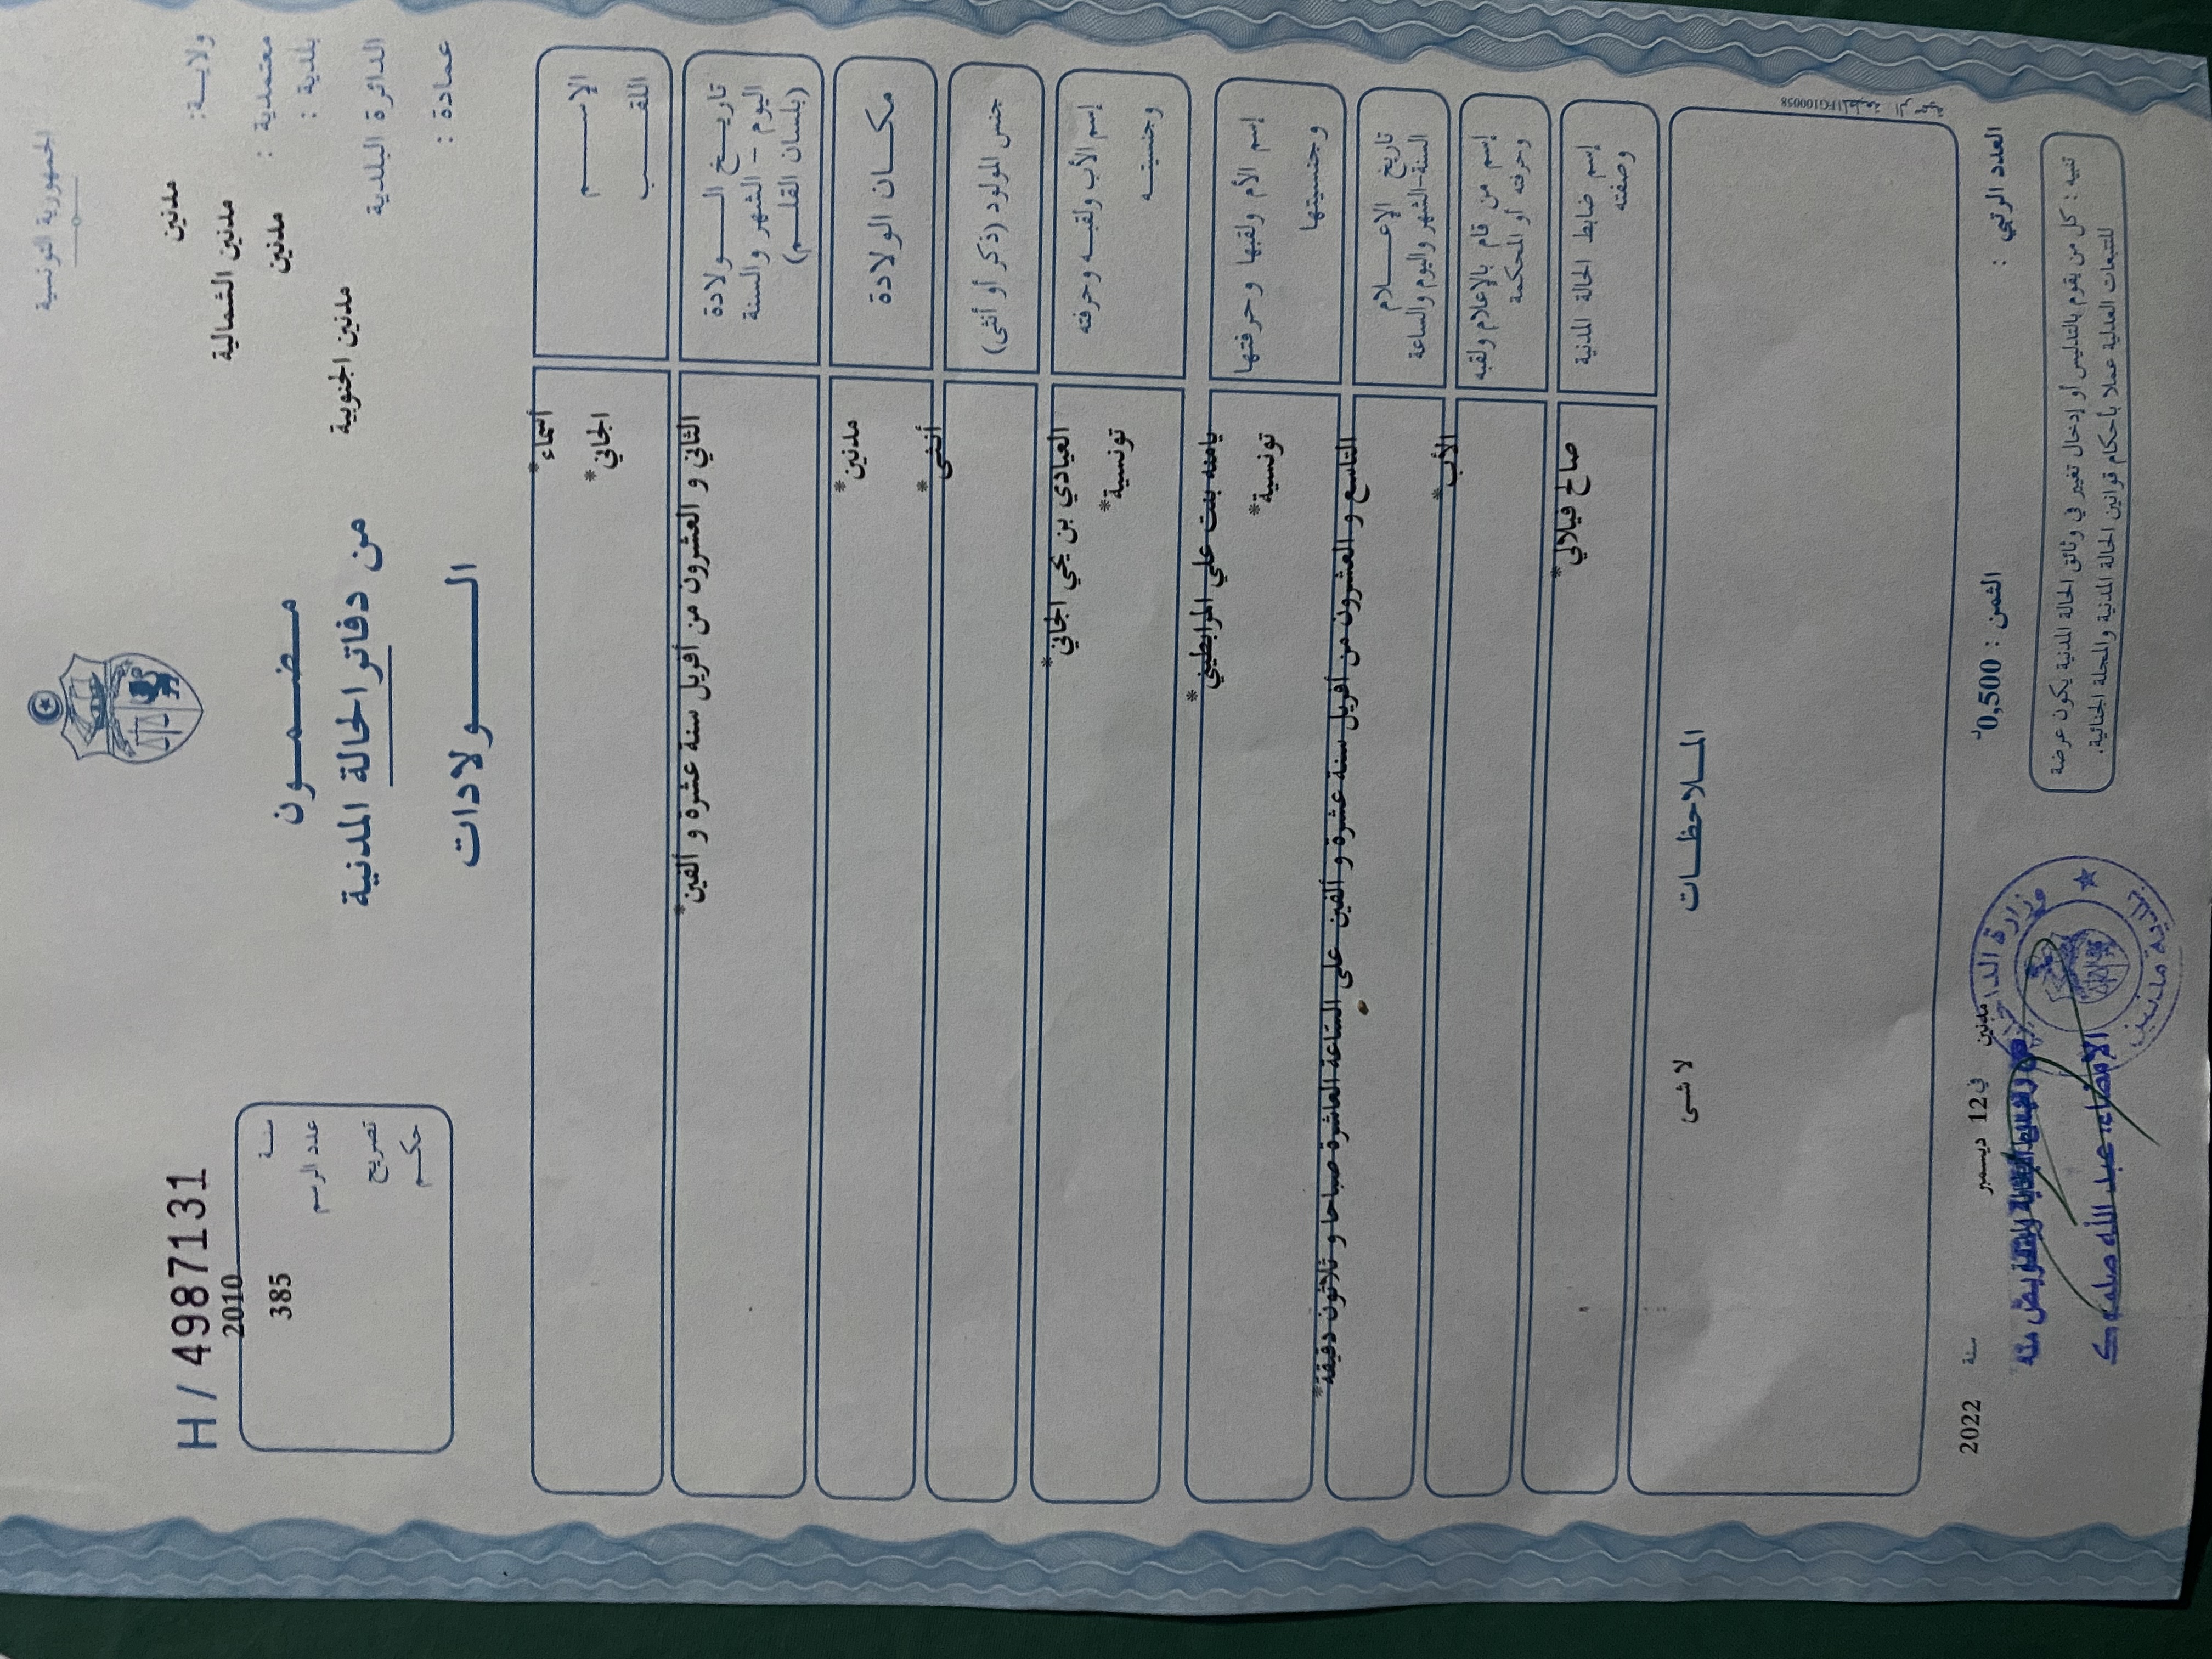 الجمهورية التونسية
ولايـــة: مدنين
معتمدية : مدنين الشمالية
بلدية : مدنين
الدائرة البلدية مدنين الجنوبية
عمادة :
H / 4987131
2010
سنـــة
عدد الرسم 385
تصريح
حكـــم
مضمـــون
من دفاتر الحالة المدنية
الـــولادات
الإســـــم *أسماء
اللقـــــب *الجاني
تاريـــخ الـــولادة
اليوم - الشهر والسنة
(بلسان القلـــم)
*الثاني و العشرون من أفريل سنة عشرة و ألفين
مكـــان الولادة
*مدنين
جنس المولود (ذكر أو أنثى)
*أنثى
إسم الأب ولقبـــه وحرفته
وجنسيتـــه
*العيادي بن يحي الجاني
*تونسية
إسم الأم ولقبها وحرفتها
وجنسيتها
*يامنه بنت علي المرابطيني
*تونسية
تاريخ الإعـــلام
السنة-الشهر واليوم والساعة
*التاسع و العشرون من أفريل سنة عشرة و ألفين على الساعة العاشرة صباحا و ثلاثون دقيقة
إسم من قام بالإعلام ولقبه
وحرفته أو المحكمة
*الأب
إسم ضابط الحالة المدنية
وصفته
*صالح فيلالي
المـــلاحظـــات
لا شىء
العدد الرتبي :
الثمن : 0,500د
مدنين في 12 ديسمبر سنة 2022
تنبيه : كل من يقوم بالتدليس أو إدخال تغيير في وثائق الحالة المدنية يكون عرضة
للتتبعات العدلية عملا بأحكام قوانين الحالة المدنية والمجلة الجنائية.
وزارة الداخلية
بلدية مدنين
الإمضاء، عبد الله صلفوك